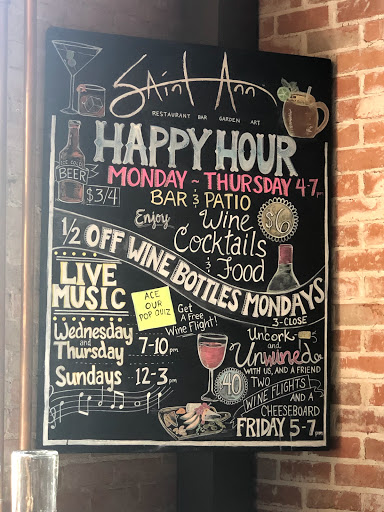 Saint Ann
RESTAURANT BAR GARDEN ART
HAPPY HOUR
MONDAY ~ THURSDAY 4-7pm
BAR & PATIO
ICE COLD
BEER
$3/4
Enjoy
Wine
Cocktails
& Food
$6
1/2 OFF WINE BOTTLES MONDAYS
3-CLOSE
LIVE
MUSIC
ACE
OUR
POP QUIZ
Get
A Free
Wine Flight!
Wednesday
and
Thursday 7-10 pm
Sundays 12-3 pm
Uncork
and
Unwined
WITH US, AND A FRIEND
40
TWO
WINE FLIGHTS
AND A
CHEESEBOARD
FRIDAY 5-7pm